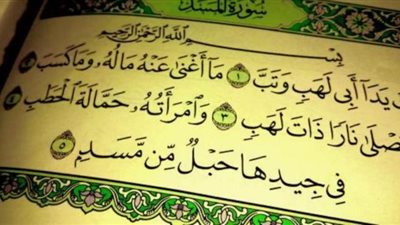 سُورَةُ المَسَد
بِسْمِ اللَّهِ الرَّحْمَٰنِ الرَّحِيمِ
يَدَآ أَبِى لَهَبٍ وَتَبَّ ١ مَآ أَغْنَىٰ عَنْهُ مَالُهُۥ وَمَا كَسَبَ ٢
صْلَىٰ نَارًا ذَاتَ لَهَبٍ ٣ وَٱمْرَأَتُهُۥ حَمَّالَةَ ٱلْحَطَبِ ٤
فِى جِيدِهَا حَبْلٌ مِّن مَّسَدٍۭ ٥